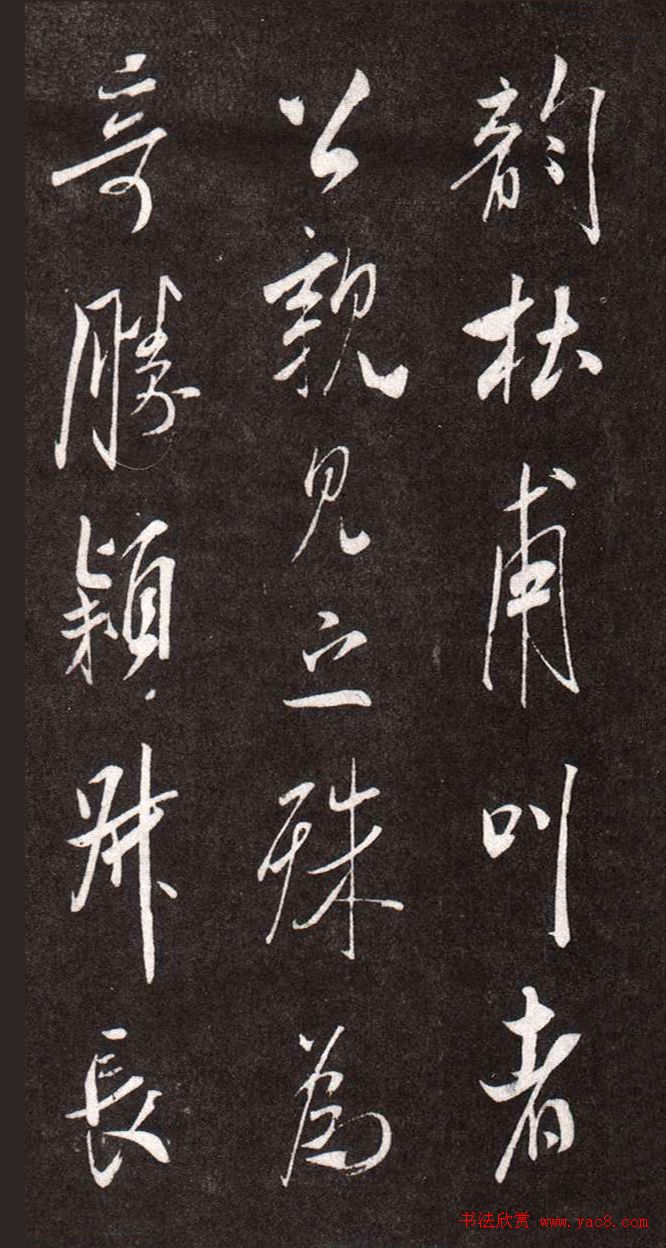 韵杜甫叫者
公親見之殊為
奇勝穎叔長
书法欣赏 www.yac8.com